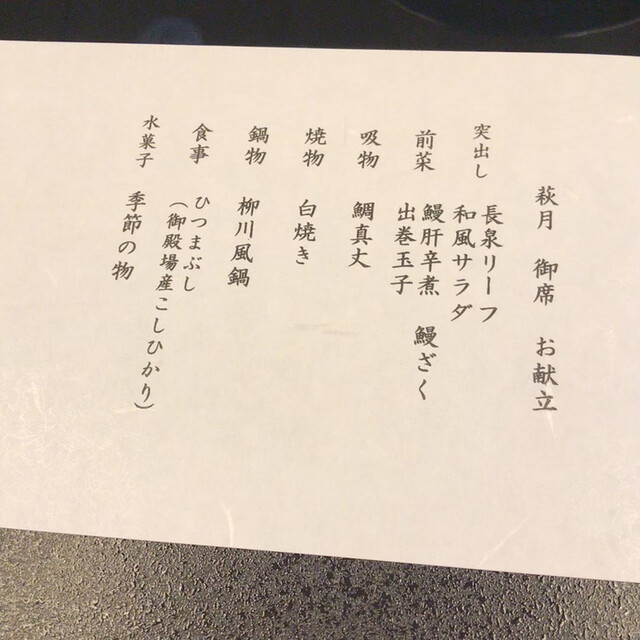 萩月 御席 お献立
突出し 長泉リーフ
和風サラダ
前菜 鰻肝辛煮 鰻ざく
出巻玉子
吸物 鯛真丈
焼物 白焼き
鍋物 柳川風鍋
食事 ひつまぶし
(御殿場産こしひかり)
水菓子 季節の物